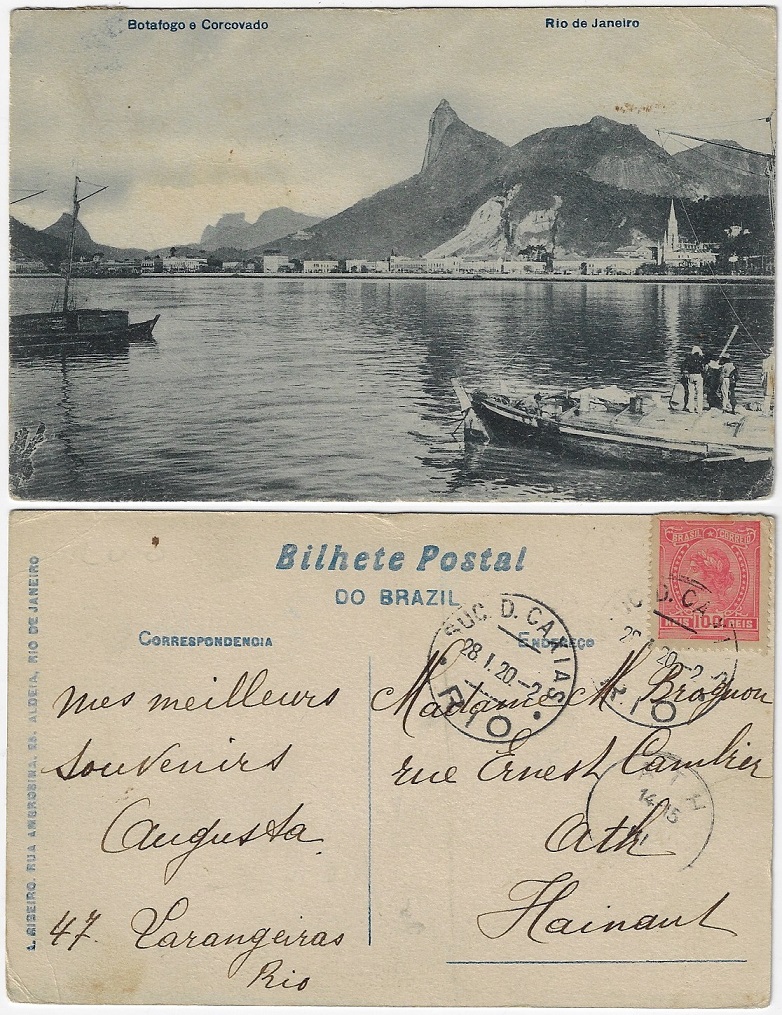 Botafogo e Corcovado
Rio de Janeiro
Bilhete Postal
DO BRAZIL
CORRESPONDENCIA
ENDEREÇO
BRASIL CORREIO
100 REIS
SUC. D. CAXIAS
28.1.20.-2
RIO
28.1.20.-2
RIO
mes meilleurs
souvenirs
Augusta
47. Larangeiras
Rio
Madame M. Brognon
rue Ernest Cambier
Ath
Hainaut
ATH
14-15
A. RIBEIRO. RUA AMBROSINA. 25. ALDEIA, RIO DE JANEIRO